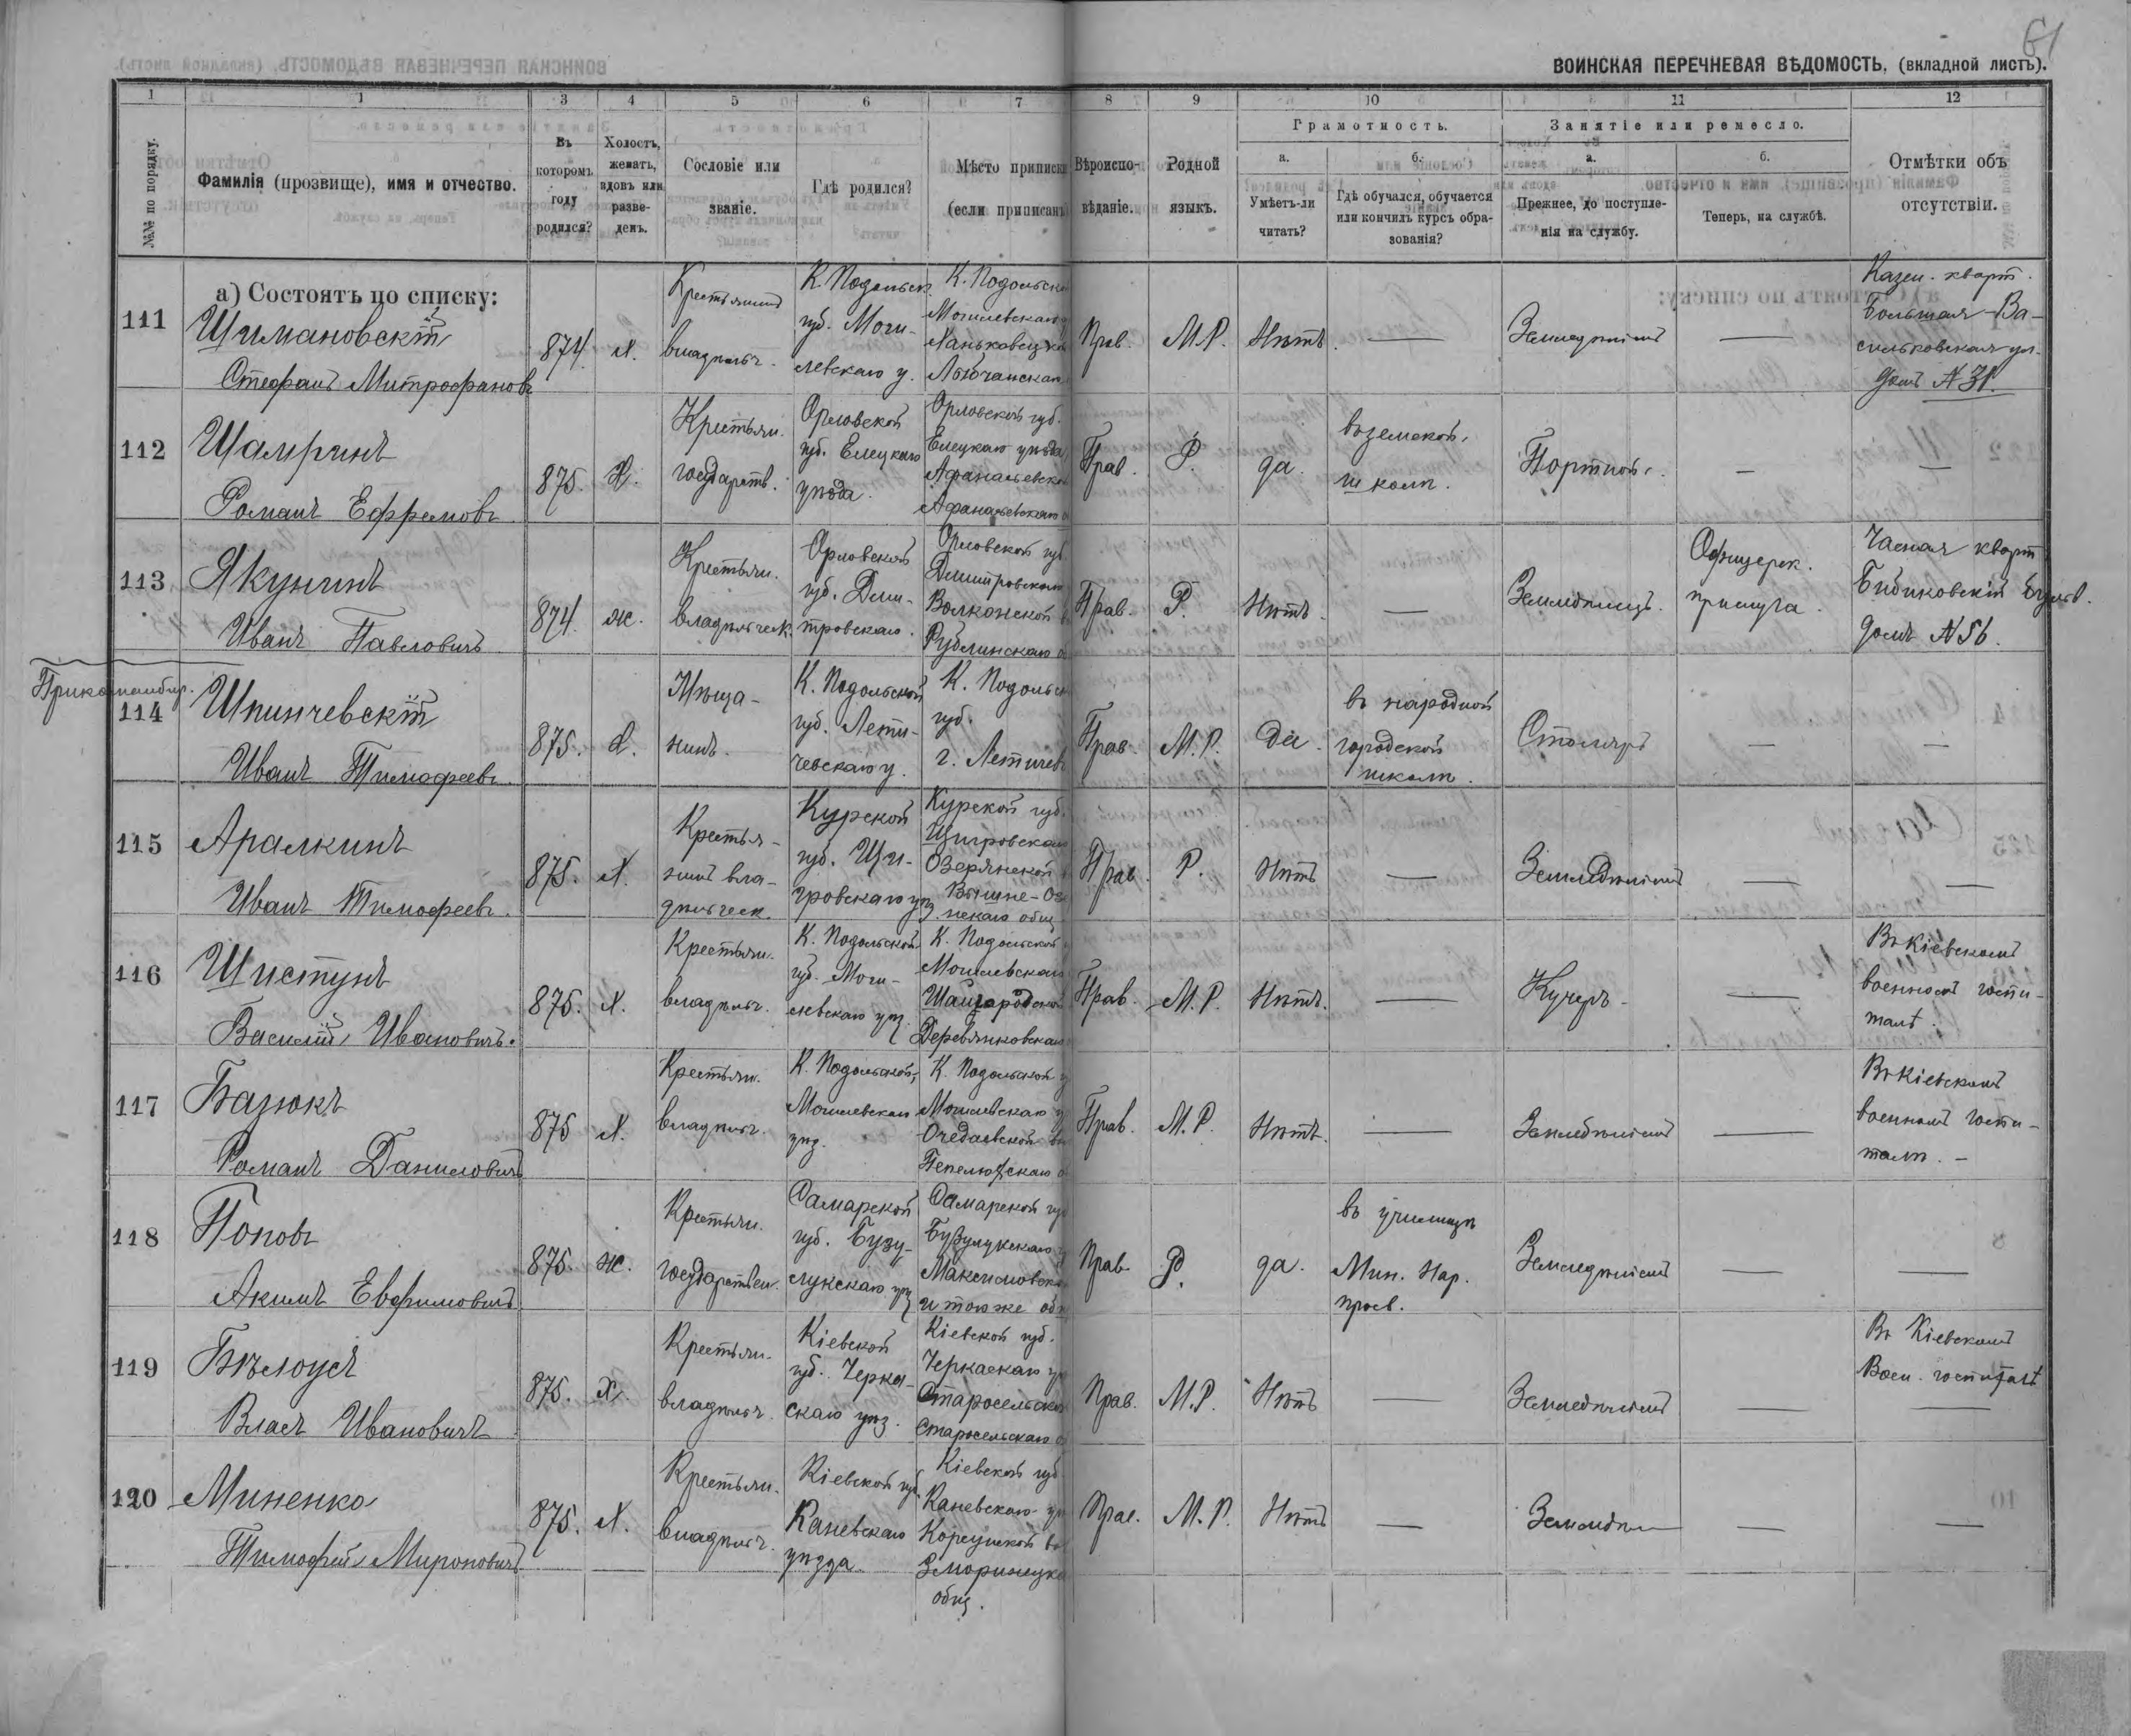 61
ВОИНСКАЯ ПЕРЕЧНЕВАЯ ВѢДОМОСТЬ, (вкладной листъ).
1 1 3 4 5 6 7 8 9 10 11 12
№№ по порядку.
Фамилія (прозвище), имя и отчество.
Въ которомъ году родился?
Холостъ, женатъ, вдовъ или разведенъ.
Сословіе или званіе.
Гдѣ родился?
Мѣсто приписки (если приписанъ
Вѣроисповѣданіе.
Родной языкъ.
Грамотность.
а.
Умѣетъ-ли читать?
б.
Гдѣ обучался, обучается или кончилъ курсъ образованія?
Занятіе или ремесло.
а.
Прежнее, до поступленія на службу.
б.
Теперь, на службѣ.
Отмѣтки объ отсутствіи.
а) Состоятъ по списку:
111
Шимановскій
Стефанъ Митрофановъ
874. Х.
Крестьянинъ
владѣльч.
К. Подольск.
губ. Моги-
левскаго у.
К. Подольско
Могилевскаго
Прав. М.Р. Нѣтъ. — Земледѣліемъ —
Казен. кварт.
Большая Ва-
сильковская ул.
домъ № 31.
112
Шамринъ
Романъ Ефремовъ
875. Х.
Крестьян.
государств.
Орловской
губ. Елецкаго
уѣзда.
Орловской губ.
Елецкаго уѣзда
Афанасьевской
Афанасьевскаго
Прав. Р. да.
въ земской
школѣ.
Портной. — —
113
Якунинъ
Иванъ Павловичъ
874. ж.
Крестьян.
владѣльческ.
Орловской
губ. Дми-
тровскаго.
Орловской губ.
Дмитровскаго
Волконской
Прав. Р. Нѣтъ. — Земледѣлецъ.
Офицерск.
прислуга.
Часная кварт
Бибиковскій бульв.
домъ № 56.
Прикомандир.
114
Шпинчевскій
Иванъ Тимофеевъ
875. Х.
Мѣща-
нинъ.
К. Подольской
губ. Лети-
чевскаго у.
К. Подольск
губ.
г. Летичев
Прав. М.Р. Да.
въ народной
городской
школѣ.
Столяръ — —
115
Аралкинъ
Иванъ Тимофеевъ.
875. Х.
Крестья-
нинъ вла-
дѣльческ.
Курской
губ. Щи-
гровскаго уѣз.
Курской губ.
Щигровскаго
Озерянской
Прав. Р. Нѣтъ — Земледѣліемъ — —
116
Шистунъ
Василій Ивановичъ.
875. Х.
Крестьян.
владѣльч.
К. Подольской
губ. Моги-
левскаго уѣз.
К. Подольской
Могилевскаго
Шаргородской
Деревянковскаго
Прав. М.Р. Нѣтъ. — Кучеръ —
Въ Кіевскомъ
военномъ госпи-
талѣ.
117
Базюкъ
Романъ Даниловичъ
875 Х.
Крестьян.
владѣльч.
К. Подольской,
Могилевскаго
уѣз.
К. Подольской
Могилевскаго
Прав. М.Р. Нѣтъ. — Земледѣліемъ —
Въ Кіевскомъ
военномъ госпи-
талѣ. —
118
Поповъ
Акимъ Евфимовичъ
875. ж.
Крестьян.
государствен.
Самарской
губ. Бузу-
лукскаго уѣз
Самарской губ
Бузулукскаго
Максимовск
и того же общ
Прав. Р. да.
въ училищѣ
Мин. Нар.
просв.
Земледѣліемъ — —
119
Бѣлоусъ
Власъ Ивановичъ
875. Х.
Крестьян.
владѣльч.
Кіевской
губ. Черка-
скаго уѣз.
Кіевской губ.
Черкаскаго
Старосельской
Старосельскаго
Прав. М.Р. Нѣтъ — Земледѣліемъ —
Въ Кіевскомъ
Воен. госпиталѣ
120
Миненко
Тимофей Мироновичъ
875. Х.
Крестьян.
владѣльч.
Кіевской губ.
Каневскаго
уѣзда
Кіевской губ
Каневскаго
Корсунской
общ.
Прав. М.Р. Нѣтъ — — —